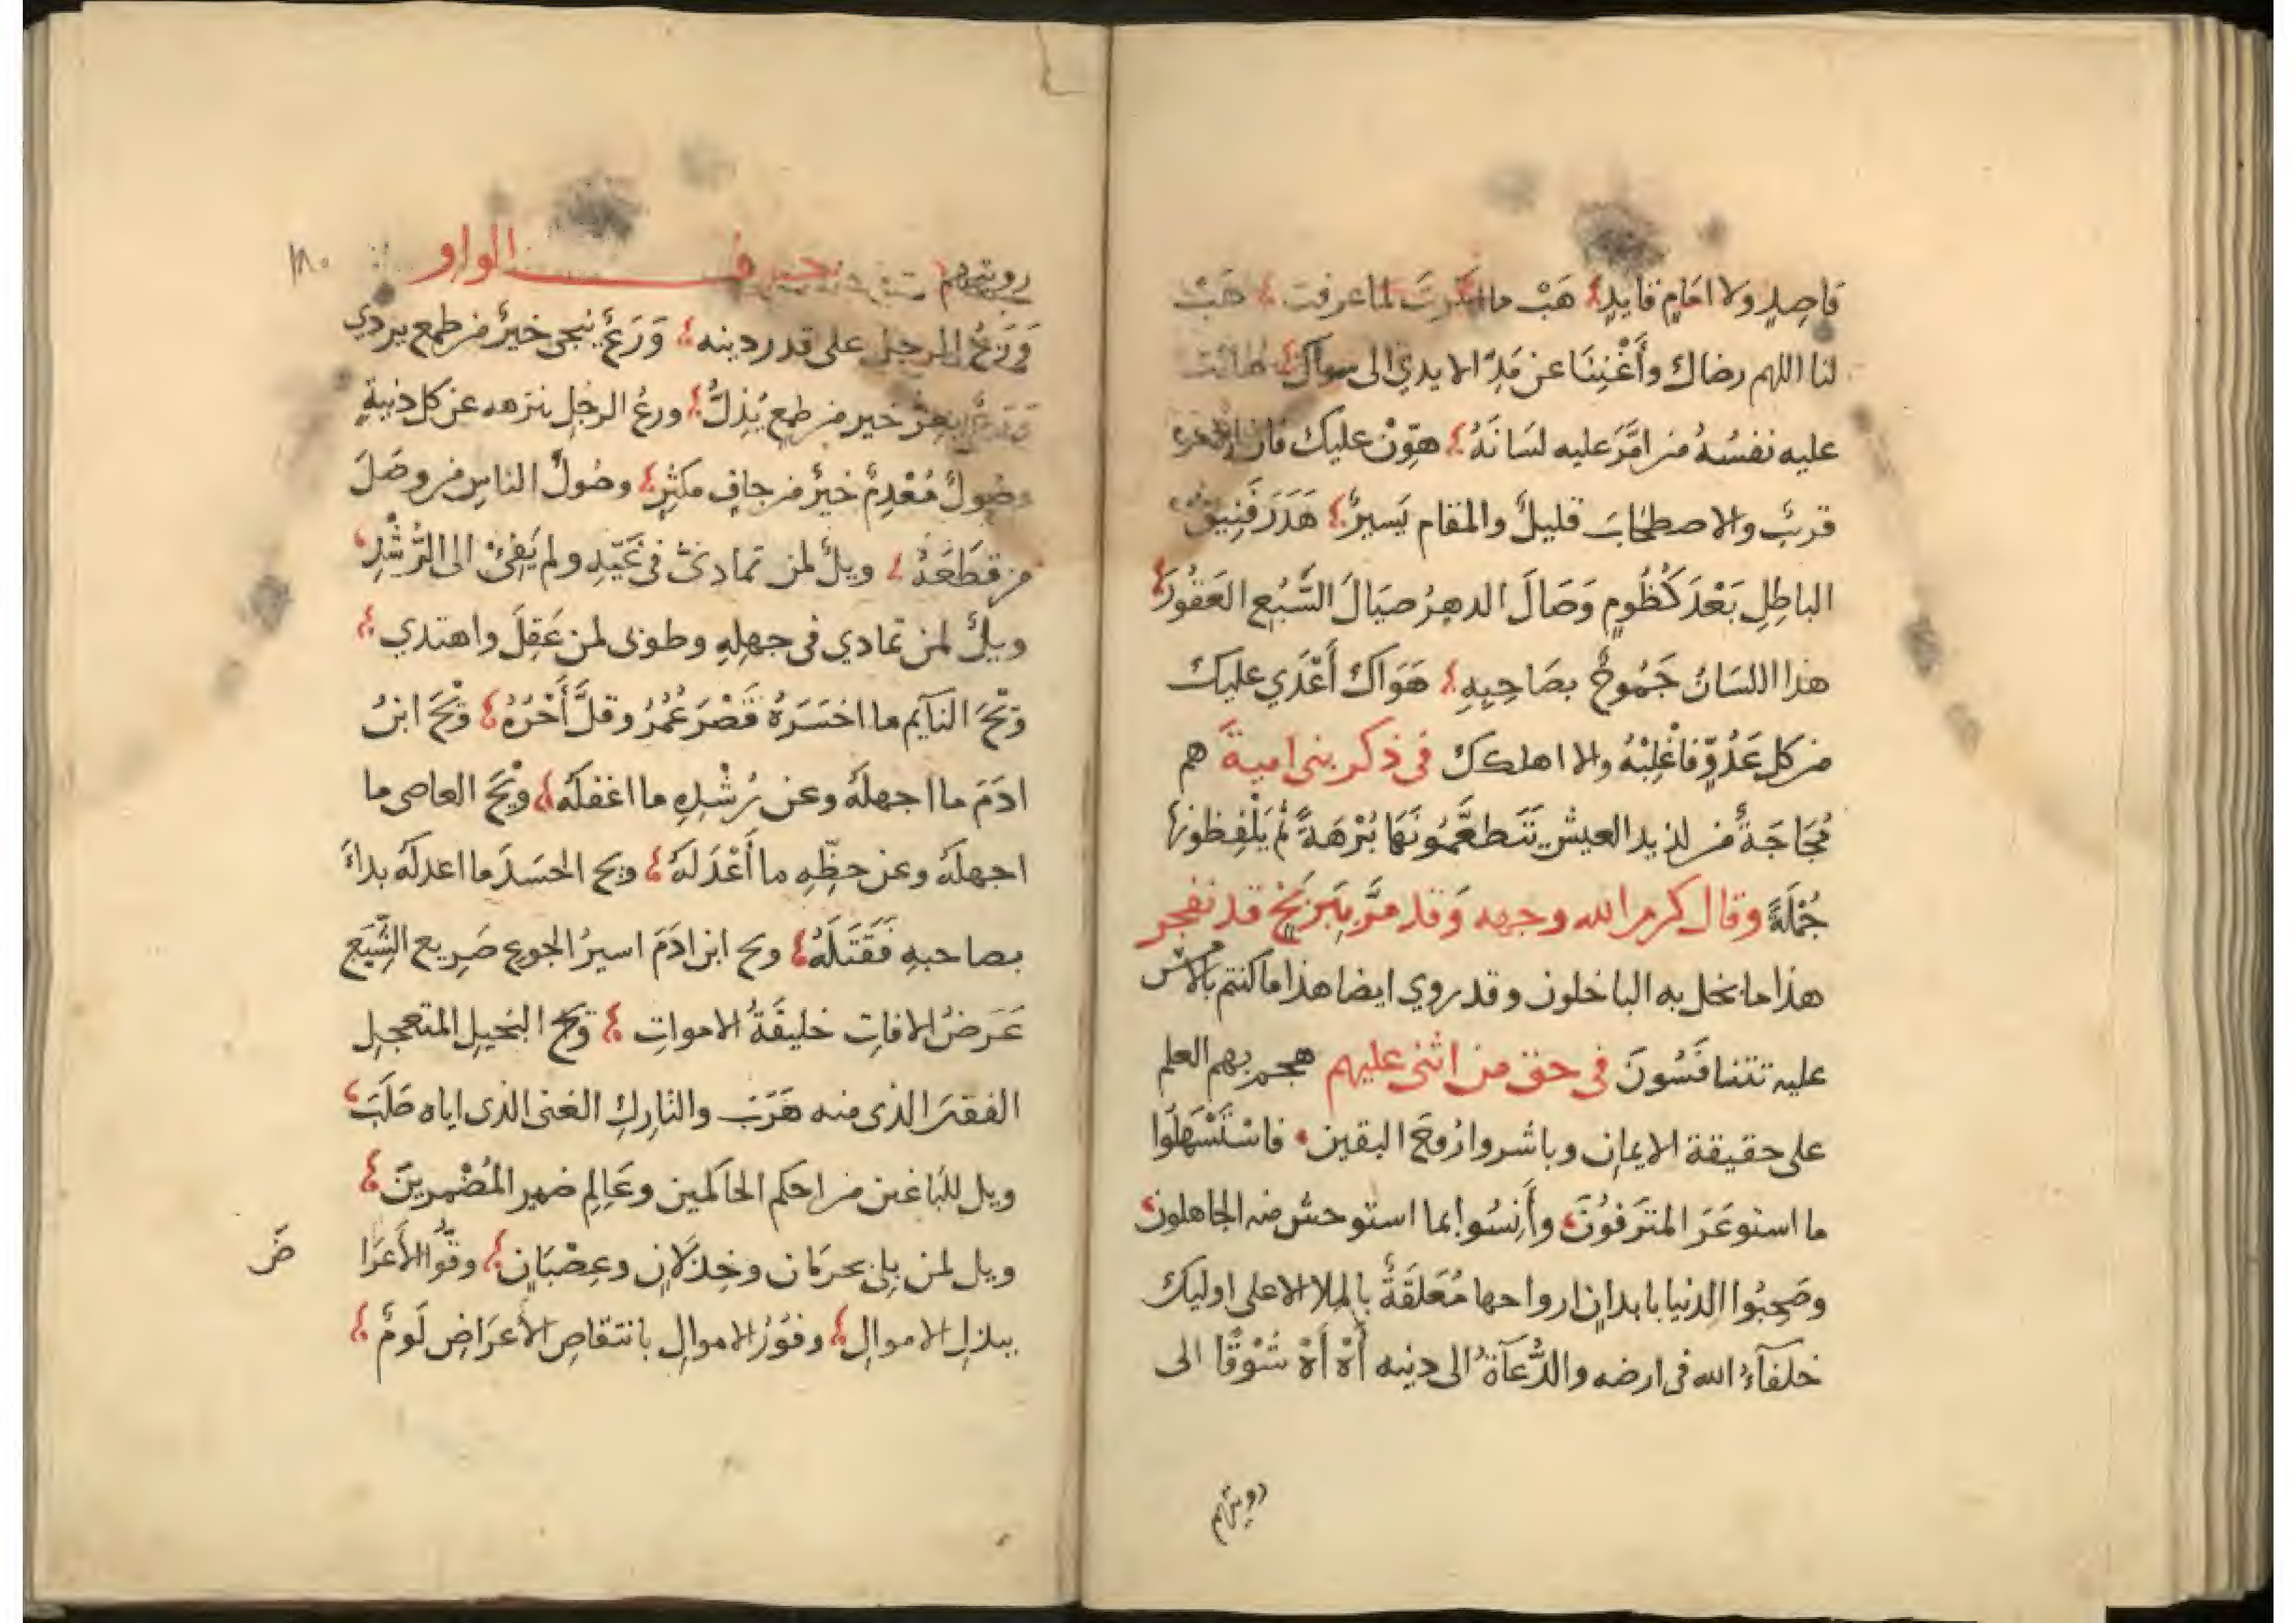 قاصدٍ ولا امَامٍ قايدٍ هَبْ ما انكرتَ لما عرفت هَبْ
لنا اللهم رضاك وأَغْنِنَا عن مَدِّ الايدي الى سواك هانت
عليه نفسُهُ من امَّرَ عليه لسَانَهُ هوّنْ عليك فان الامر
قربٌ والاصطحَابَ قليلٌ والمقام يَسيرٌ هَدَرَ فَنِيقُ
الباطِلِ بَعْدَ كُظُومٍ وَصَالَ الدهرُ صيَالَ السَّبُع العَقُورِ
هذا اللسَانُ جَمُوحٌ بصَاحِبِهِ هَوَاكَ أَعْدَي عليك
من كل عَدُوٍّ فاغْلِبْهُ والا اهلكك في ذكر بني امية هم
مُجَاجَةٌ من لذيد العيش يَتَطعَّمُونَهَا بُرْهَةً ثم يَلْفِظونها
جُمْلَةً وقال كرم الله وجهه وَقد مَرَّ بِبَرْبَخٍ قد نفجر
هذا ما بخل به الباخلون وقد روي ايضا هذا ما كنتم بالامس
عليه تتنافَسُونَ في حق من اثنى عليهم هجم بهم العلم
على حقيقة الايمان وباشروا رُوحَ اليقين فاسْتَسْهَلُوا
ما استوعَرَ المتَرَفوُنَ وأَنِسُوا بما استوحش منه الجاهلون
وصَحِبُوا الدنيا بابدانٍ ارواحها مُعَلقَةٌ بالملا الاعلى اوليك
خلفآءُ الله في ارضه والدُّعَآةُ الى دينه أَهْ أَهْ شَوْقًا الى
رويتهم
رويتهم حرف الواو ١٨٠
وَرَعُ الرجل على قدر دينه وَرَعٌ ينجى خيرٌ من طمع يردي
وَرَعٌ يعزّ خير من طمع يُذِلُّ ورعُ الرجل ينزهه عن كل دنيةٍ
وصُولٌ مُعْدِمٌ خيرٌ من جافٍ مكثِرٍ وصُولُ الناسِ من وصَلَ
من قَطَعَهُ ويلٌ لمن تمادىٰ في غَيّهِ ولم يَفِئْ الى الرُّشْدِ
ويلٌ لمن تمادي في جهلِهِ وطوبى لمن عَقِلَ واهتدي
وَيْحَ النآيم ما اخسَرَهُ قَصْرَ عُمُرُ وقلَّ أَجْرُهُ وَيْحَ ابنُ
ادَمَ ما اجهلَهُ وعن رُشْدِهِ ما اغفلَهُ وَيْحَ العاصى ما
اجهلَهُ وعن حظِّهِ ما أَعْدَلهُ ويح الحسَدَ ما اعدلَهُ بداءَ
بصاحبهِ فَقَتَلَهُ ويح ابن ادَمَ اسيرُ الجوعِ صَرِيع الشِّبَعِ
عَرَضُ الافاتِ خليفَةُ الامواتِ وَيْحَ البخيلِ المتعجِلِ
الفقرَ الذى منه هَرَبَ والتَارِكِ الغنى الذى اياه طَلَبَ
ويل للبَاغين من احكم الحاكمين وعَالِمِ ضمير المُضْمِرِينَ
ويل لمن بلى بحرمَان وخِذلَانٍ وعِصْيَانٍ وقُّوا الأَعرَا ضَ
ببذلِ الاموالِ وفوُرُ الاموالِ بانتقاصِ الأَعرَاضِ لَومٌ